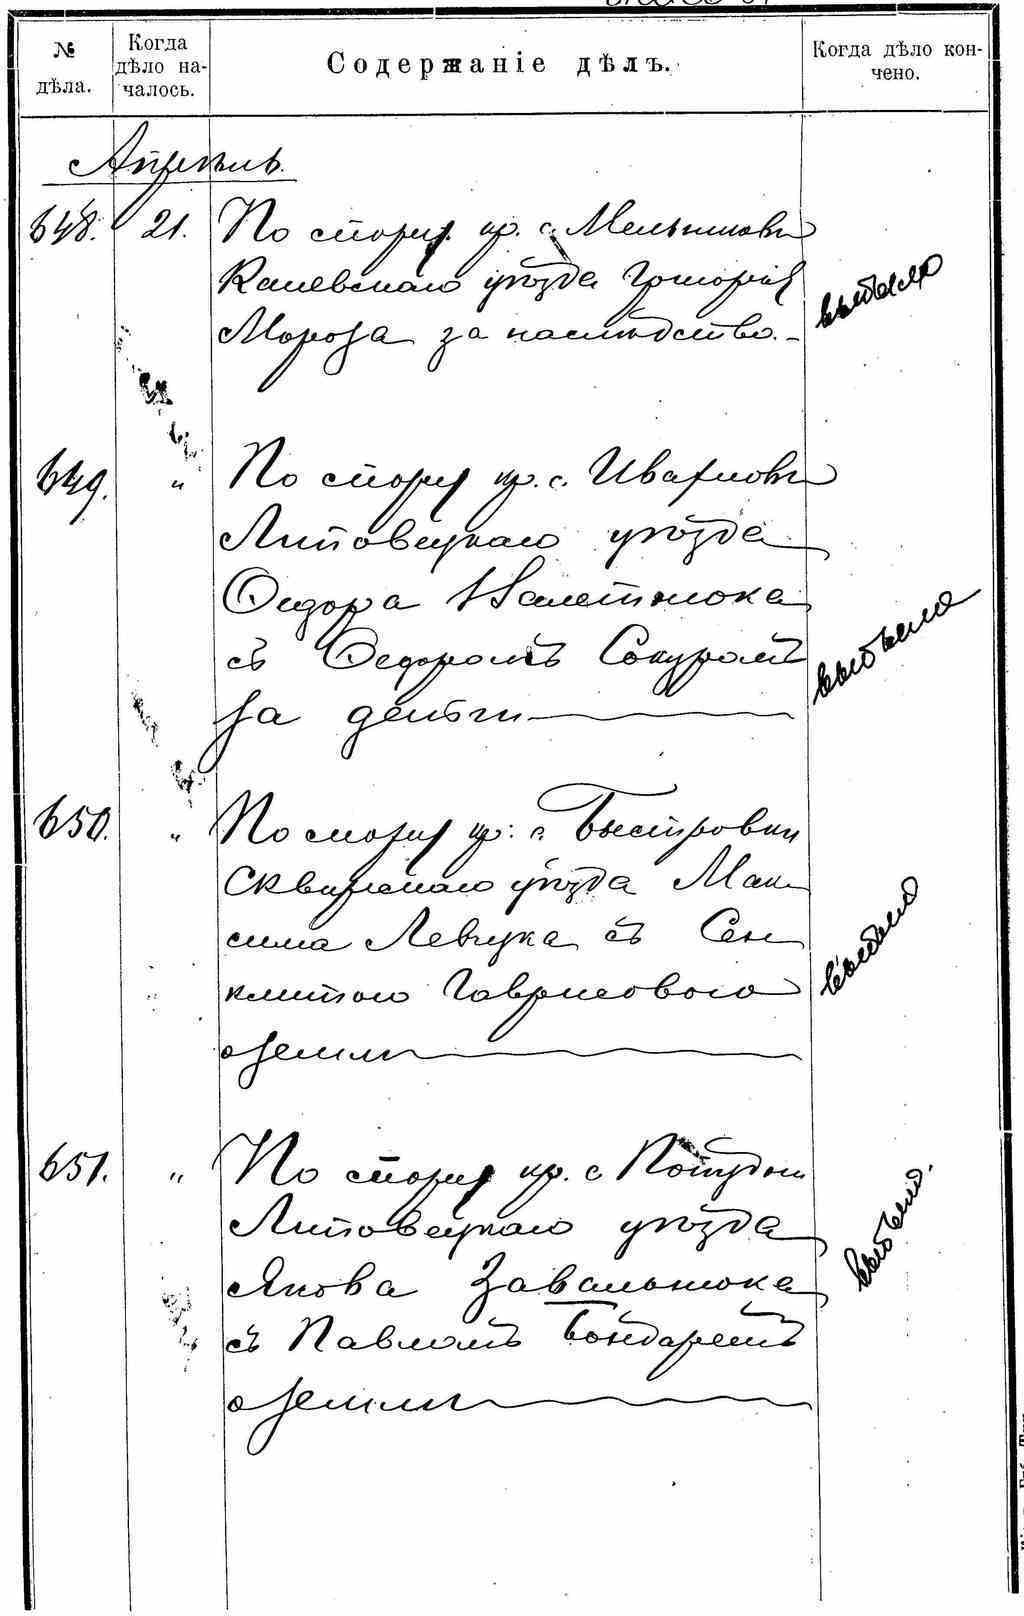 № дѣла.
Когда дѣло на-
чалось.
Содержаніе дѣлъ.
Когда дѣло кон-
чено.
Апрѣль.
648. 21. По спору кр. с. Мельниковъ
Каневскаго уѣзда Григорія
Мороза за наслѣдство.-
выбыло
649. " По спору кр. с. Ивахновъ
Липовецкаго уѣзда
Федора
съ Федоромъ Сокуромъ
за деньги
выбыло
650. " По спору кр: с. Быстровки
Сквирскаго уѣзда Мак
сима Левчука съ Син
клитою Гаврисовою
о земли
выбыло
651. " По спору кр. с
Липовецкаго уѣзда
Якова Завальнюка
съ Павломъ Бондаремъ
о земли
выбыло.